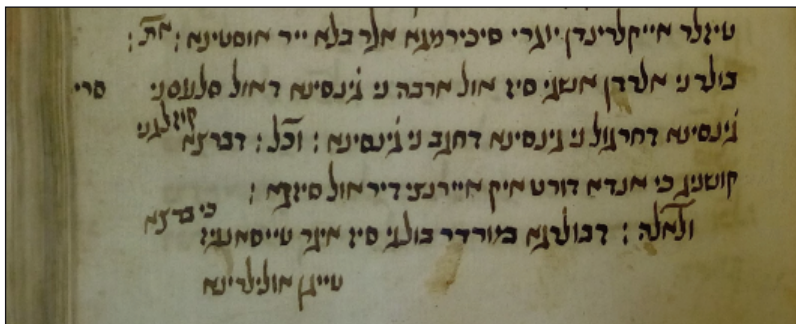 טיזלר אייקלרינדן יוגרי סיכירמגא אלר בלא ייר אוסטינא ׃ את ׃
בולר ני אלרדן אשני סיז אול ארבה ני גינסינא דאול סלעם ני סרי
גינסינא דחרגול ני גינסינא דחגב ני גינסינא ׃ וכל ׃ דברצא
קושניג כי אנדא דורט איק איירנצי דיר אול סיזגא ׃
ולאלה ׃ דבולרגא במורדר בולגי סיז איגר טייסאנגיז כי ברצא
טייגן אולילרינא